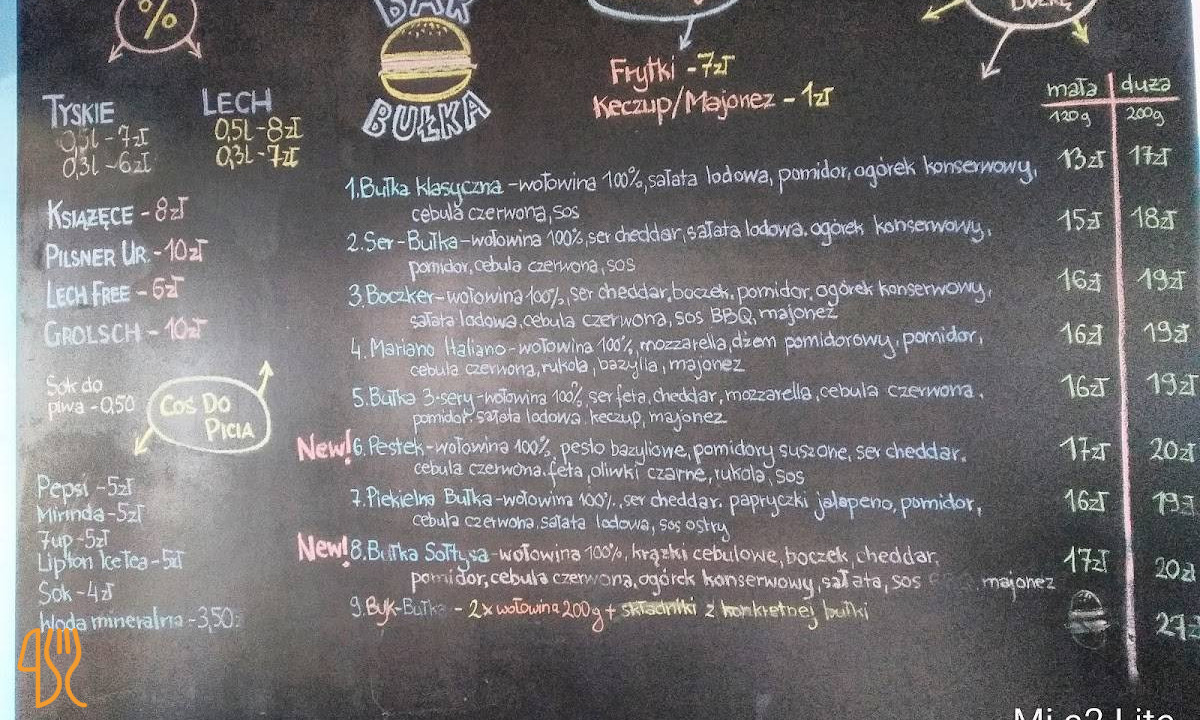 %
BAR
BUŁKA
BUŁKĘ
Frytki - 7zł
Keczup/Majonez - 1zł
TYSKIE
0,5l - 7zł
0,3l - 6zł
LECH
0,5l - 8zł
0,3l - 7zł
KSIĄŻĘCE - 8zł
PILSNER UR. - 10zł
LECH FREE - 6zł
GROLSCH - 10zł
Sok do
piwa - 0,50
COŚ DO
PICIA
Pepsi - 5zł
Mirinda - 5zł
7up - 5zł
Lipton Ice Tea - 5zł
Sok - 4zł
Woda mineralna - 3,50z
mała duża
120g 200g
1. Bułka klasyczna - wołowina 100%, sałata lodowa, pomidor, ogórek konserwowy, 13zł 17zł
cebula czerwona, sos
2. Ser-Bułka - wołowina 100%, ser cheddar, sałata lodowa, ogórek konserwowy, 15zł 18zł
pomidor, cebula czerwona, sos
3. Boczker - wołowina 100%, ser cheddar, boczek, pomidor, ogórek konserwowy, 16zł 19zł
sałata lodowa, cebula czerwona, sos BBQ, majonez
4. Mariano Italiano - wołowina 100%, mozzarella, dżem pomidorowy, pomidor, 16zł 19zł
cebula czerwona, rukola, bazylia, majonez
5. Bułka 3-sery - wołowina 100%, ser feta, cheddar, mozzarella, cebula czerwona, 16zł 19zł
pomidor, sałata lodowa, keczup, majonez
New! 6. Pestek - wołowina 100%, pesto bazyliowe, pomidory suszone, ser cheddar, 17zł 20zł
cebula czerwona, feta, oliwki czarne, rukola, sos
7. Piekielna Bułka - wołowina 100%, ser cheddar, papryczki jalapeno, pomidor, 16zł 19z
cebula czerwona, sałata lodowa, sos ostry
New! 8. Bułka Sołtysa - wołowina 100%, krążki cebulowe, boczek, cheddar, 17zł 20zł
pomidor, cebula czerwona, ogórek konserwowy, sałata, sos majonez
9. Byk-Bułka - 2x wołowina 200g + składniki z konkretnej bułki 27z